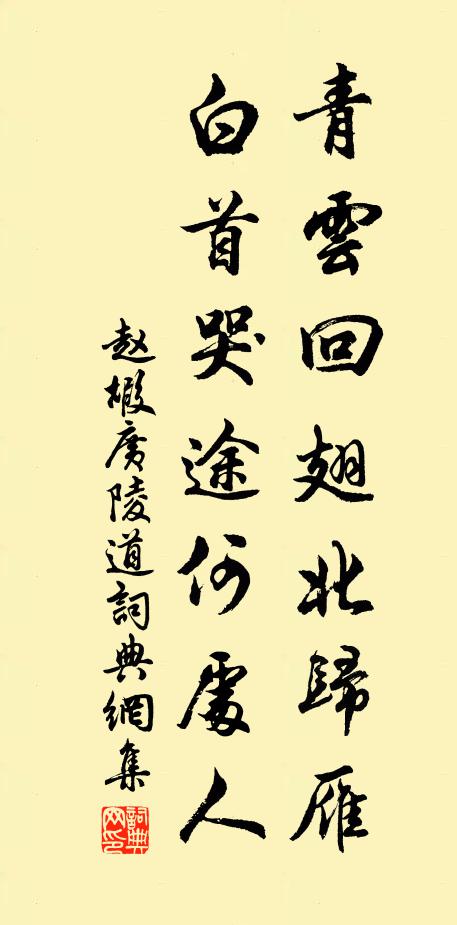 青雲回翅北歸雁
白首哭途何處人
赵嘏廣陵道詞典網集
詞典网印